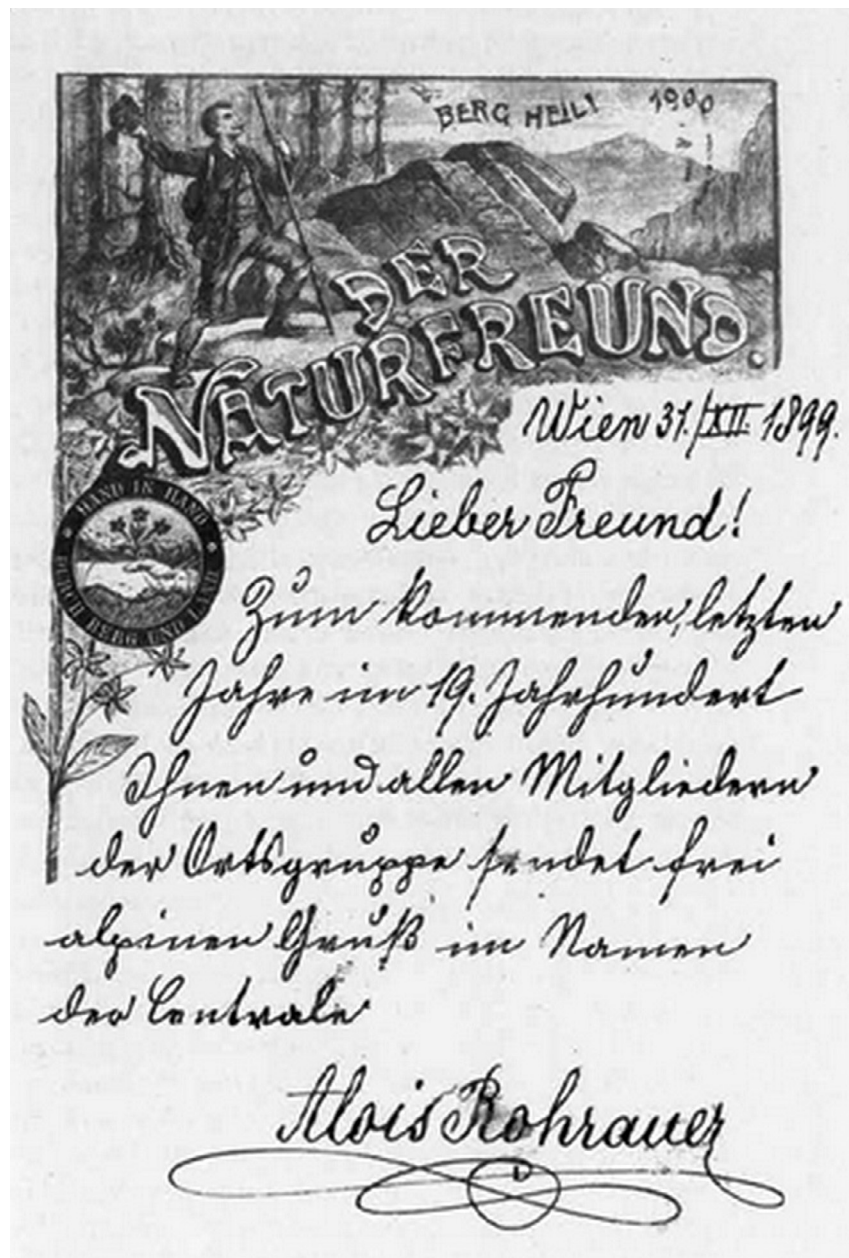 BERG HEIL! 1900
DER
NATURFREUND.
Wien 31./XII. 1899.
Lieber Freund!
HAND IN HAND
DURCH BERG UND LAND
Zum kommenden, letzten
Jahre im 19. Jahrhundert
Ihnen und allen Mitgliedern
der Ortsgruppe sendet frei
alpinen Gruß im Namen
der Centrale
Alois Rohrauer